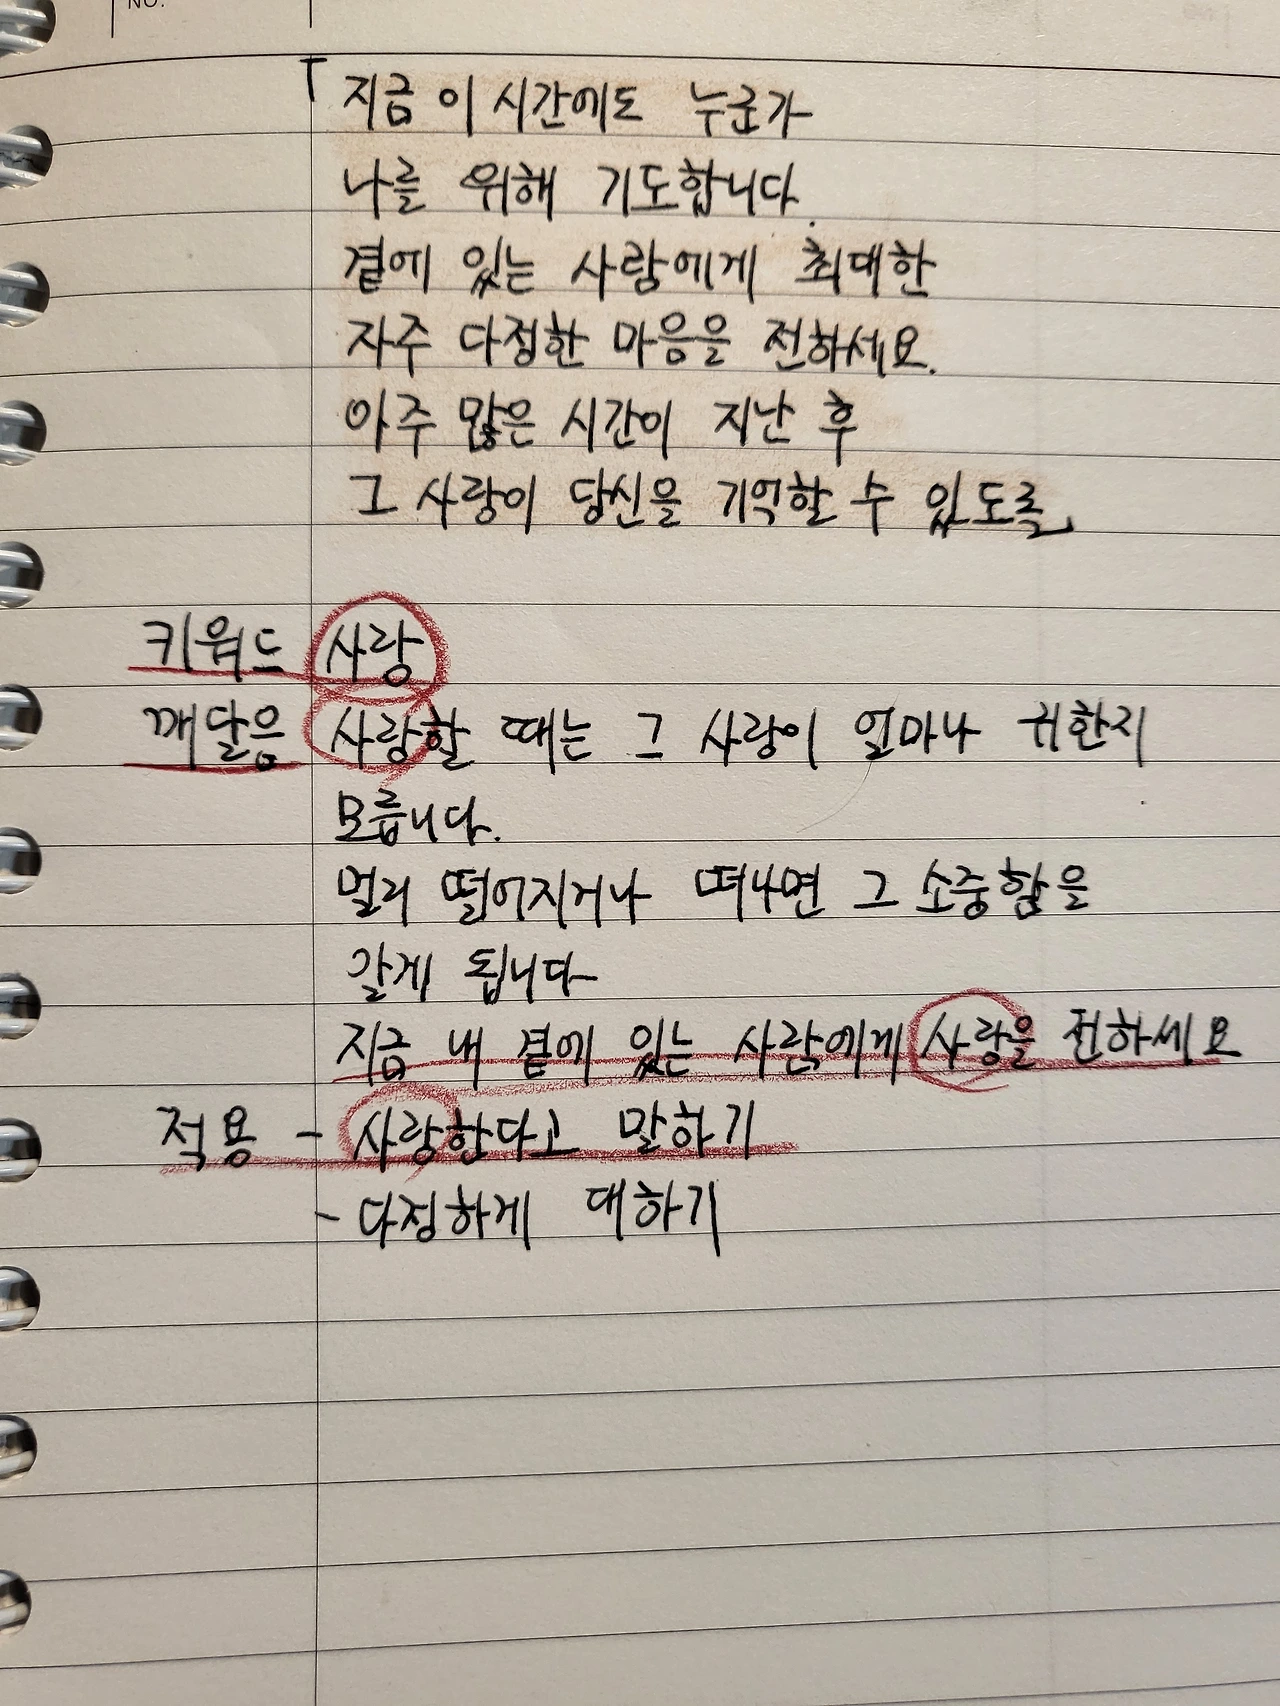 NO.
「지금 이 시간에도 누군가
나를 위해 기도합니다.
곁에 있는 사람에게 최대한
자주 다정한 마음을 전하세요.
아주 많은 시간이 지난 후
그 사랑이 당신을 기억할 수 있도록」
키워드 사랑
깨달음 사랑할 때는 그 사랑이 얼마나 귀한지
모릅니다.
멀리 떨어지거나 떠나면 그 소중함을
알게 됩니다
지금 내 곁에 있는 사람에게 사랑을 전하세요
적용 - 사랑한다고 말하기
- 다정하게 대하기